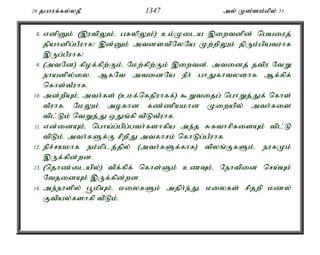 29 தபாரக்கல்லதீ 1347 அல் முஸ்ஸம்மில் 73
8. எனினும் (இரவிலும், பகலிலும்) உம்முடைய இறைவனின் பெயரைத்
தியானிப்பீராக! இன்னும் அவனளவிலேயே முற்றிலும் திரும்பியவராக
இருப்பீராக!
9. (அவனே) கிழக்கிற்கும், மேற்கிற்கும் இறைவன். அவனைத் தவிர வேறு
நாயனில்லை. ஆகவே அவனையே நீர் பாதுகாவலனாக ஆக்கிக்
கொள்வீராக.
10. அன்றியும், அவர்கள் (உமக்கெதிராகக்) கூறுவதைப் பொறுத்துக் கொள்
வீராக. மேலும் அழகான கண்ணியமான முறையில் அவர்களை
விட்டும் வெறுத்து ஒதுங்கி விடுவீராக.
11. என்னையும், பொய்ப்பிப்பவர்களாகிய அந்த சுகவாசிகளையும் விட்டு
விடும். அவர்களுக்கு சிறிது அவகாசம் கொடுப்பீராக.
12. நிச்சயமாக நம்மிடத்தில் (அவர்களுக்காக) விலங்குகளும், நரகமும்
இருக்கின்றன.
13. (தொண்டையில்) விக்கிக் கொள்ளும் உணவும், நோவினை செய்யும்
வேதனையும் இருக்கின்றன.
14. அந்நாளில் பூமியும், மலைகளும் அதிர்ந்து, மலைகள் சிதறி மணல்
குவியல்களாகி விடும்.